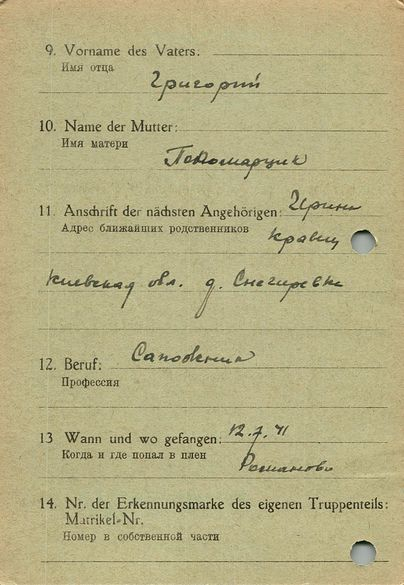 9. Vorname des Vaters:
Имя отца
Григорий
10. Name der Mutter:
Имя матери
Пономарчук
11. Anschrift der nächsten Angehörigen: Ирина
Адрес ближайших родственников
Кравец
Киевская обл. д. Снегиревка
12. Beruf: Сапожник
Профессия
13 Wann und wo gefangen: 12.7.41
Когда и где попал в плен
Романово
14. Nr. der Erkennungsmarke des eigenen Truppenteils:
Matrikel-Nr.
Номер в собственной части